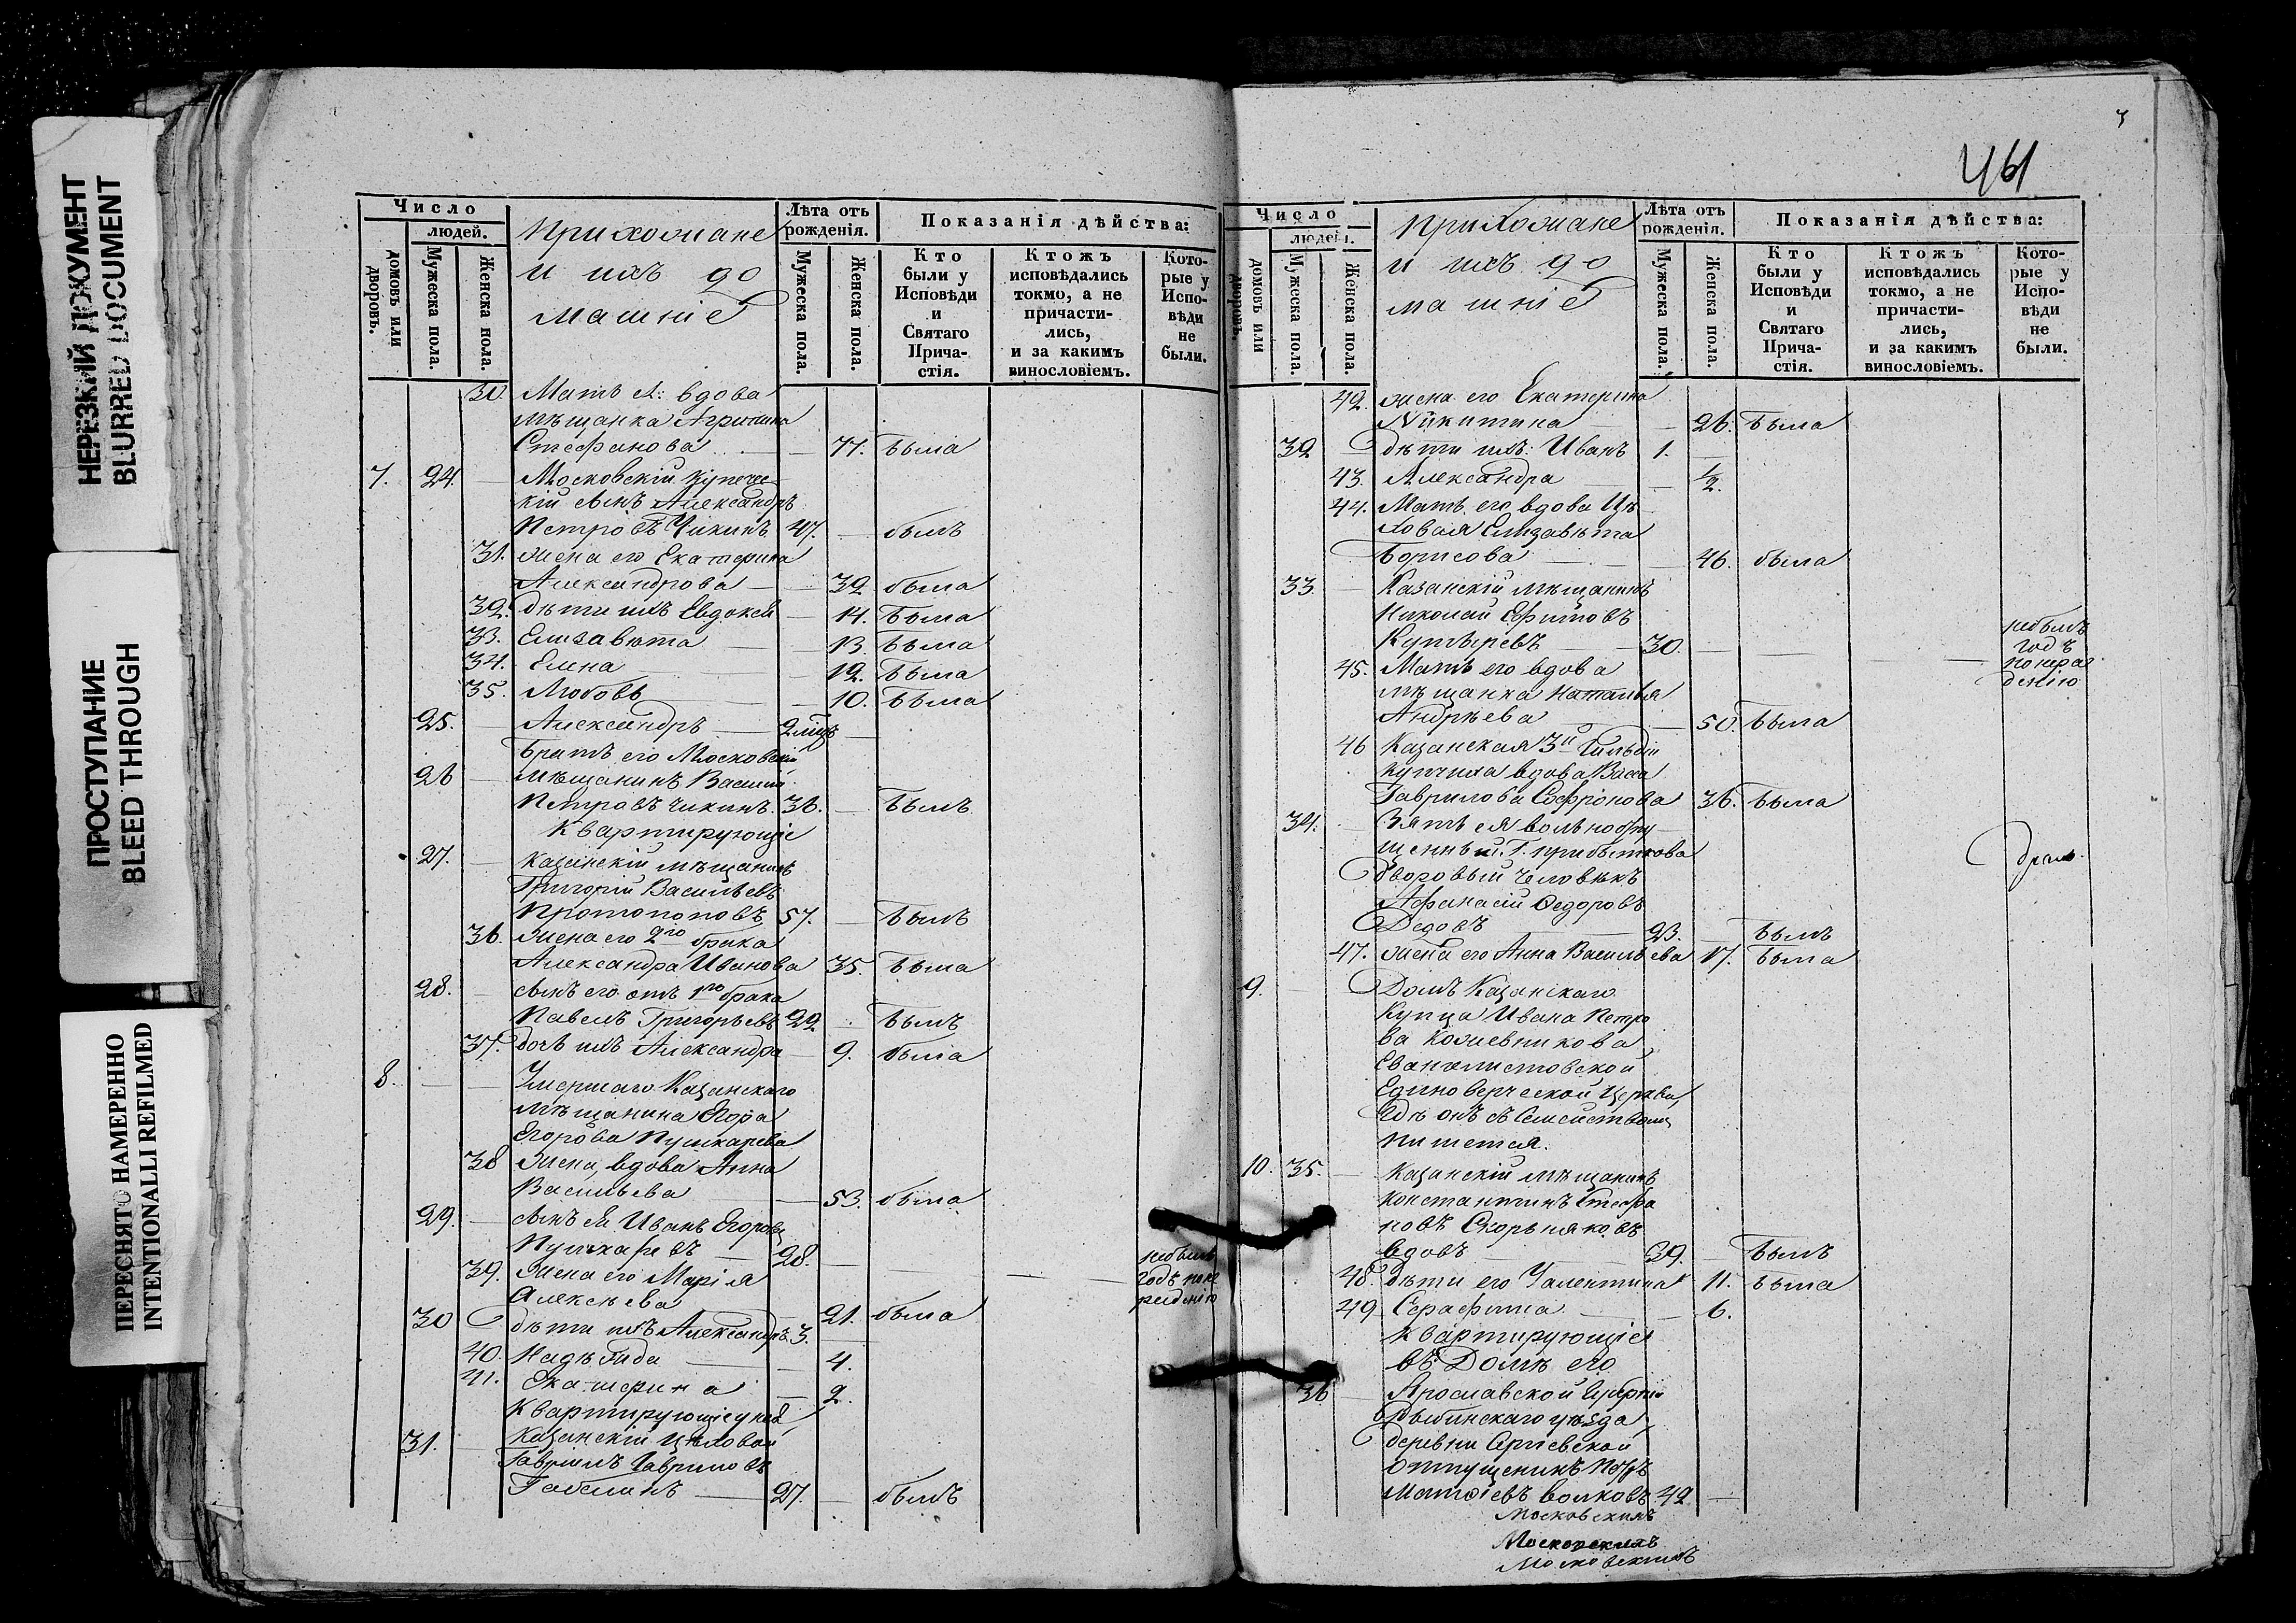 НЕРЕЗКИЙ ДОКУМЕНТ
BLURRED DOCUMENT
ПРОСТУПАНИЕ
BLEED THROUGH
ПЕРЕСНЯТО НАМЕРЕННО
INTENTIONALLI REFILMED
Число
людей.
домовъ или дворовъ.
Мужеска пола.
Женска пола.
Прихожане
и ихъ до
машніе
Лѣта отъ рожденія.
Мужеска пола.
Женска пола.
Показанія дѣйства:
Кто были у Исповѣди и Святаго Прича-стія.
Ктожъ исповѣдались токмо, а не причасти-лись, и за какимъ винословіемъ.
Кото-рые у Испо-вѣди не были.
30. Мать А: вдова
мѣщанка Агрипина
Стефанова — 77. была
7. 24. Московскій купечес
кій сынъ Александръ
Петровъ Чикинъ 47. — былъ
31. жена его Екатерина
Александрова — 32 была
32. дѣти ихъ Евдокея — 14. была
33. Елизавета — 13. была
34. Елена — 12. была
35. Любовь — 10. была
25. Александръ — 2 мцъ —
братъ его Московскій
26 — мѣщанинъ Василій
Петровъ Чикинъ. 36. — былъ
Квартирующіе
27. — Казанскій мѣщанинъ
Григорій Васильевъ
Протопоповъ 57. — былъ
36. Жена его 2го брака
Александра Иванова 35. была
28. — сынъ его отъ 1го брака
Павелъ Григорьевъ 22 — былъ
37. дочь ихъ Александра — 9. была
8. — — Умершаго Казанскаго
мѣщанина Егора
Егорова Пушкарева
38 Жена, вдова Анна
Васильева — 53. была
29. — сынъ ея Иванъ Егоровъ
Пушкаревъ — 28. — — небылъ
39. Жена его Марія — годъ поне
Алексѣева — 21. была радѣнію
30 дѣти ихъ Александръ 3. —
40. Надѣжда — 4.
41. Екатерина — 2.
Квартирующіе у ней
31. — Казанскій цѣховой
Гаврилъ Гавриловъ
27. — былъ
461
Число
людей.
домовъ или дворовъ.
Мужеска пола.
Женска пола.
Прихожане
и ихъ до
машніе
Лѣта отъ рожденія.
Мужеска пола.
Женска пола.
Показанія дѣйства:
Кто были у Исповѣди и Святаго Прича-стія.
Ктожъ исповѣдались токмо, а не причасти-лись, и за какимъ винословіемъ.
Кото-рые у Испо-вѣди не были.
42. жена его Екатерина
Никитина — 26. была
32 дѣти ихъ: Иванъ 1. —
43. Александра — 1/2.
44. Мать его вдова Цѣ
ховая Елизавета
Борисова — 46. была
33. — Казанскій мѣщанинъ
Николай Ефимовъ
Кутыревъ — 30. — — небылъ годъ
45. Мать его вдова — понера
мѣщанка Наталья дѣнію
Андрѣева — 50. была
46 Казанская 3й Гильдіи
купчиха вдова Васса
Гаврилова Софронова 36. была
34. — Зять ея вольноотпу
щенный Г. Прибыткова
дворовый человѣкъ
Афанасій Федоровъ
Дедовъ — 23. — былъ
47. жена его Анна Васильева 17. была
9. — Домъ Казанскаго
Купца Ивана Петро
ва Кожевникова
Евангелистовской
Единоверческой Церкви,
гдѣ онъ съ Семействомъ
пишется.
10. 35. — Казанскій мѣщанинъ
Константинъ Стефа
новъ Скорняковъ
вдовъ 39. — былъ
48. дѣти его Валентина 11. была
49 Серафима — 6.
Квартирующіе
въ Домѣ его
36 — Ярославской Губерніи
Рыбинскаго уѣзда,
деревни Сергіевской
отпущеникъ Петръ
Матѳіевъ Волковъ 42 —
Московскихъ
Московскихъ
Московскихъ